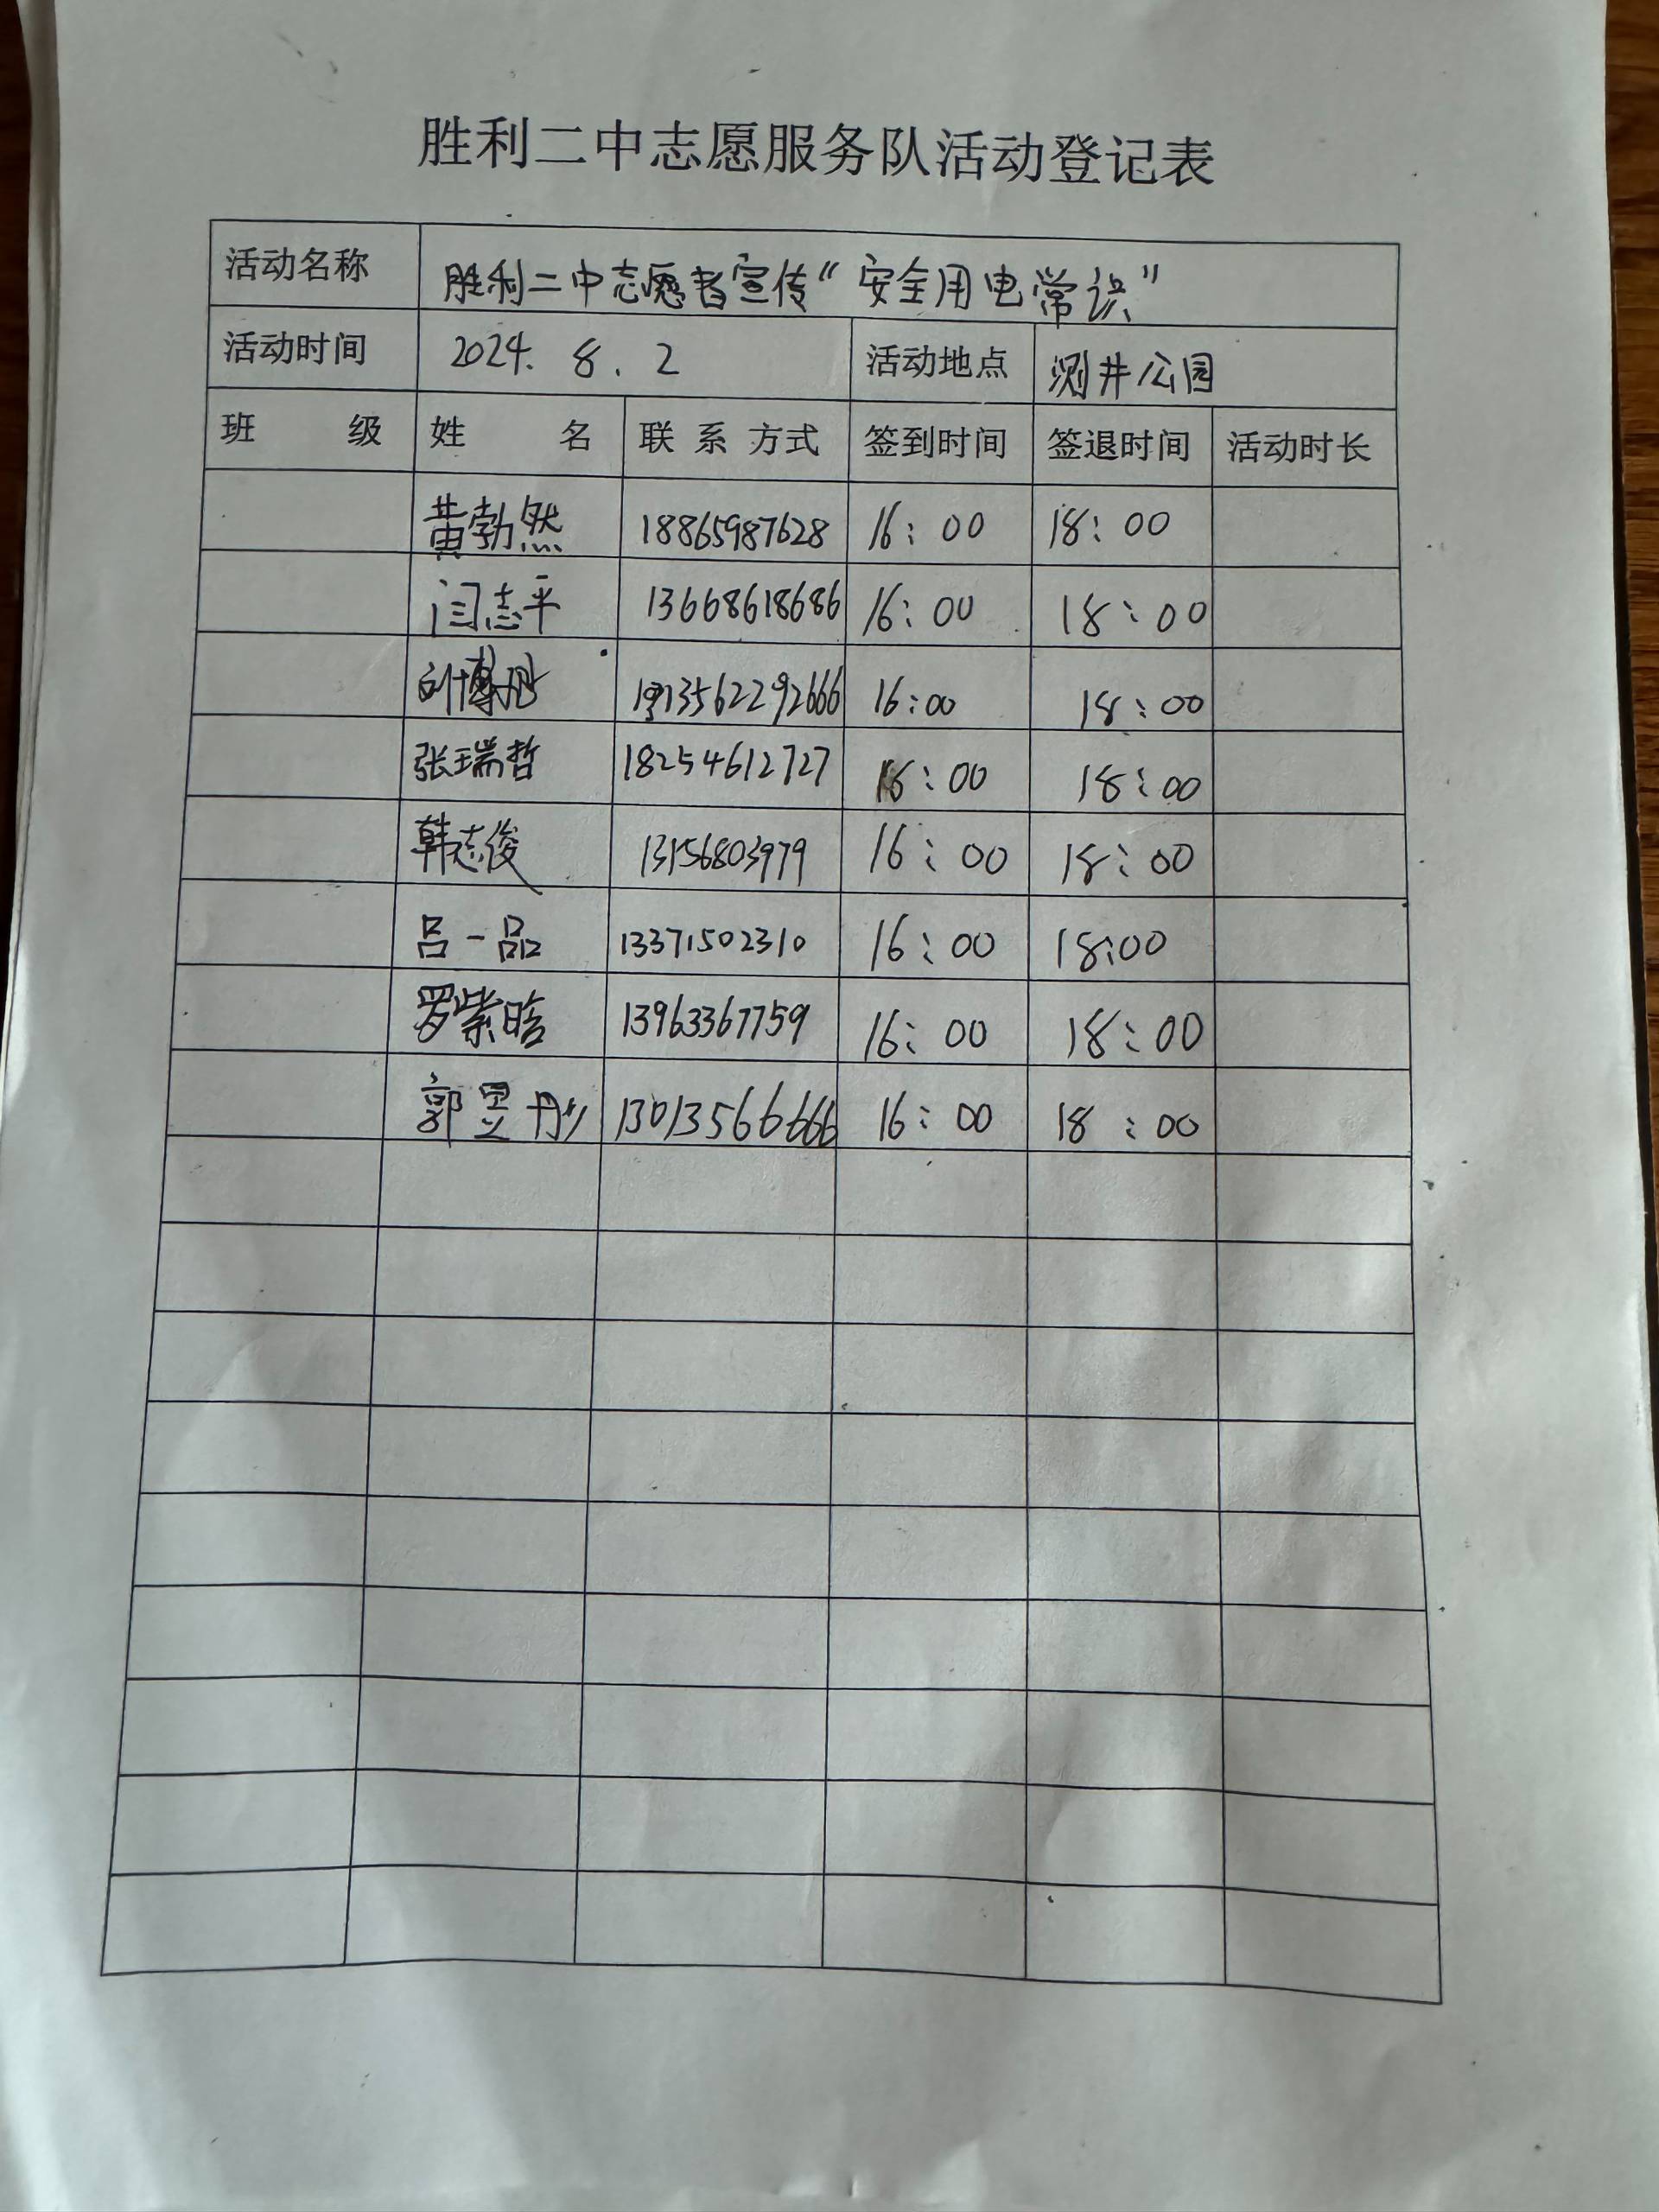 胜利二中志愿服务队活动登记表
活动名称 胜利二中志愿者宣传“安全用电常识”
活动时间 2024.8.2 活动地点 测井公园
班 级 姓 名 联系方式 签到时间 签退时间 活动时长
黄勃然 18865987628 16:00 18:00
闫志平 13668618686 16:00 18:00
刘博 13562292666 16:00 18:00
张瑞哲 18254612727 16:00 18:00
韩志俊 13156803979 16:00 18:00
吕一品 13371502310 16:00 18:00
罗紫晗 13963367759 16:00 18:00
郭昱彤 13013566666 16:00 18:00